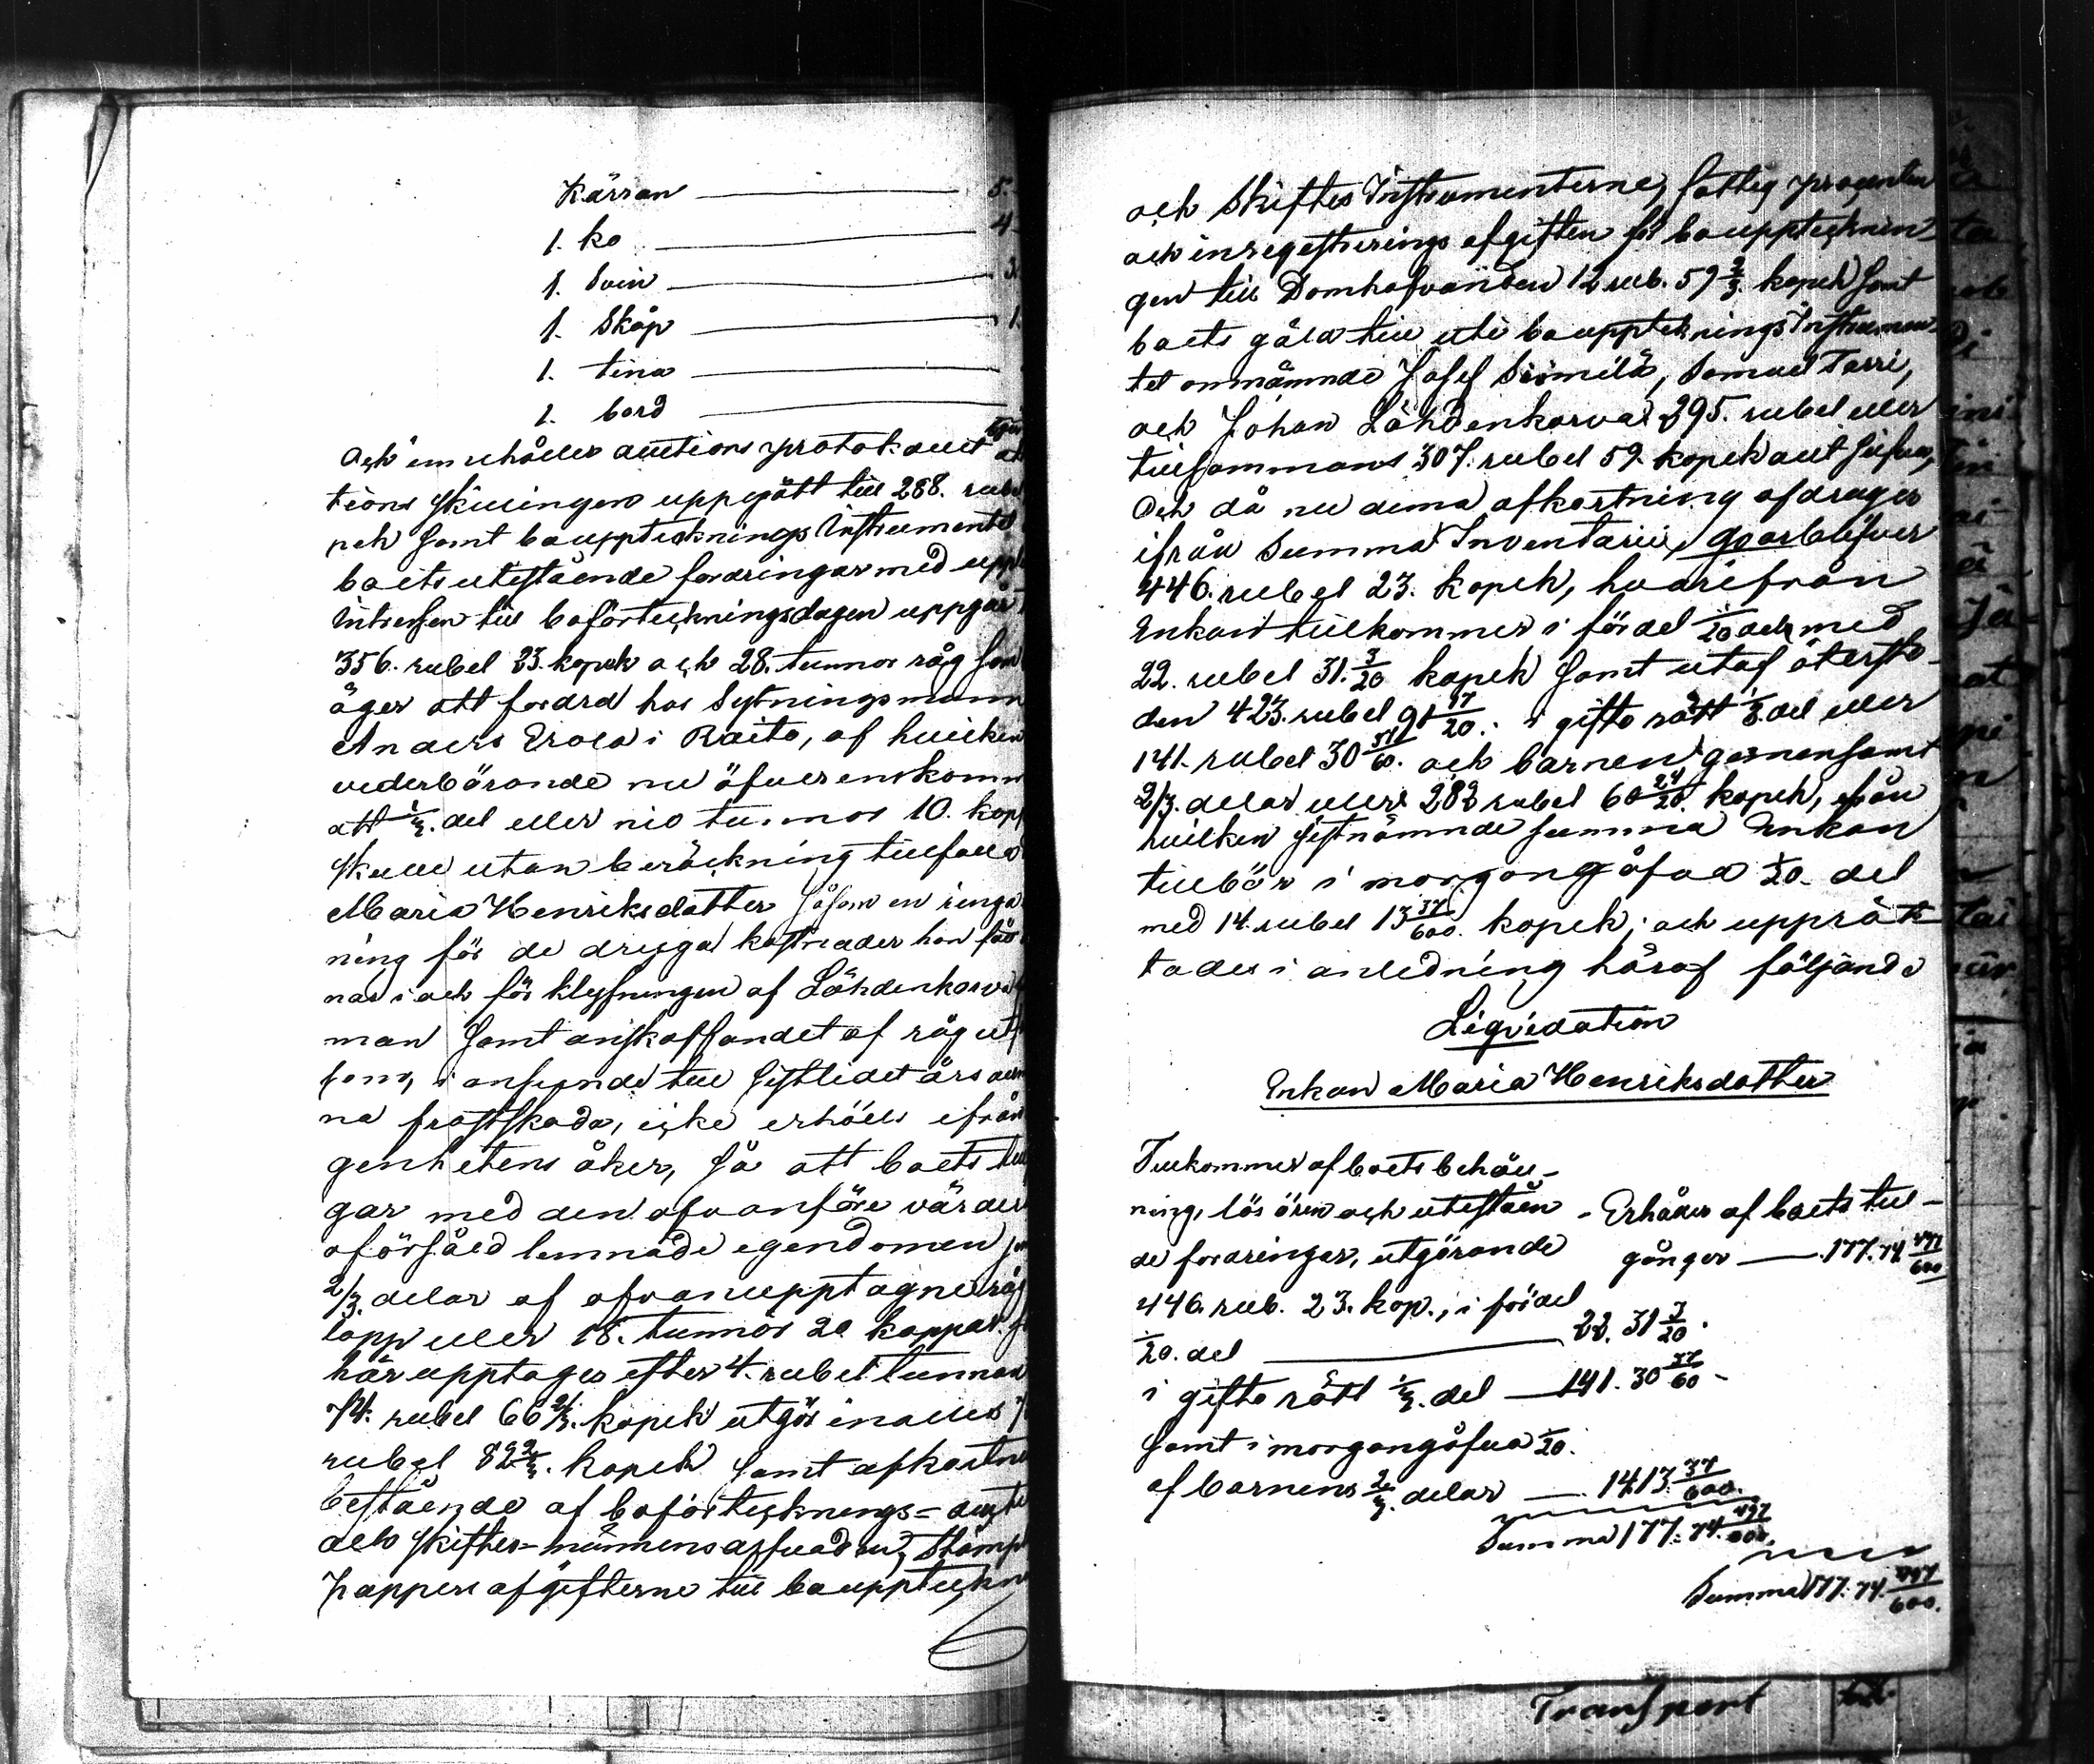 Kärran — 5.
1. ko — 4
1. Svin — 3.
1. Skåp — 1.
1. tina —
1. bord —
Och innehåller auctions protokollet
tions skillingen uppgått till 288. rub
pek samt bouppteckningsInstrumentet
boets utestående fordringar med uppl
Intressen till boförteckningsdagen uppgår
356. rubel 23. kopek och 28. tunnor råg som
äger att fordra hos Sytningsmann
Anders Erola i Raito, af hvilken
vederbörande nu öfverenskomm
att 1/3. del eller nio tunnor 10. kapp
skulle utan beräckning tillfalla
Maria Henriksdotter såsom en ringa
ning för de dryga kostnader hon få
nas i och för klyfningen af Lähdenkorva
man samt anskaffandet af råg ut
som, i anseende till sistlidet års
na frostskada, icke erhölls ifrån
genhetens åker, så att boets till
gar med den ofvanföre värder
oförsåld lemnade egendomen
2/3. delar af ofvanupptagne råg
lopp eller 18. tunnor 20 kappar
här upptages efter 4. rubel tunnan
74. rubel 66 2/3. kopek utgör inalles 7
rubel 82 2/3. kopek samt afkortn
bestående af boförtecknings- aucti
och skiftes-männens arfvoden, Stämp
Pappers afgifterne till bouppteckn
och Skiftes Instrumenterne, fattig procenten
och inregistrerings afgiften för boupptecknin
gen till Domhafvanden 12 rub. 59 2/3. kopek samt
boets gäld till uti bouppteknings Instrumen
tet omnämnde Josef Siimilä, Samuel Tarri,
och Johan Lähdenkorva 295. rubel eller
tillsammans 307. rubel 59. kopek allt silfver,
Och då nu denna afkortning afdrages
ifrån Summa Inventarii, qvarblifver
446. rubel 23. kopek, hvarifrån
Enkan tillkommer i fördel 1/20 del med
22. rubel 31. 3/20 kopek samt utaf återsto-
den 423. rubel 91 17/20. i gifto rätt 1/3. del eller
141. rubel 30 37/60. och barnen gemensamt
2/3. delar eller 282 rubel 60 kopek, ifrån
hvilken sistnämnde summa Enkan
tillhör i morgongåfva 1/20. del
med 14. rubel 13 37/600. kopek; och upprät-
tades i anledning häraf följande
Liqvidation
Enkan Maria Henriksdotter
Tillkommer af boets behåll-
ning, lös ören och utestäen
de fordringar, utgörande
446. rub. 23. kop., i fördel
1/20. del — 22. 31 3/20.
i gifto rätt 1/3. del — 141. 30 37/60 -
samt i morgongåfva 1/20.
af barnens 2/3. delar — 14.13. 37/600.
Summa 177. 74. 497/600.
- Erhåller af boets till-
gångar — 177. 74 497/600
Summa 177. 74. 497/600.
Transport